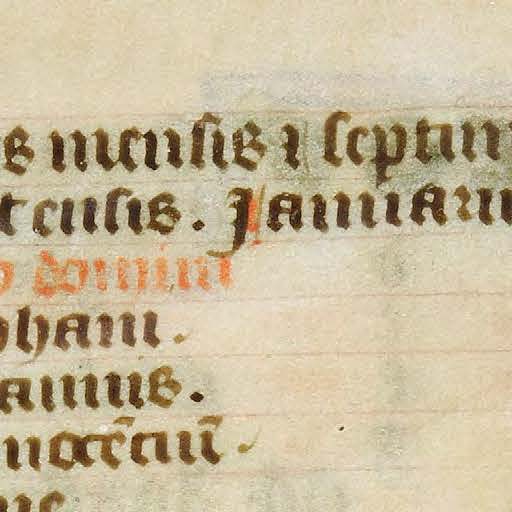 s mensis ⁊ septim
t ensis. Januariu
o domini
phani.
annis.
nocẽciũ